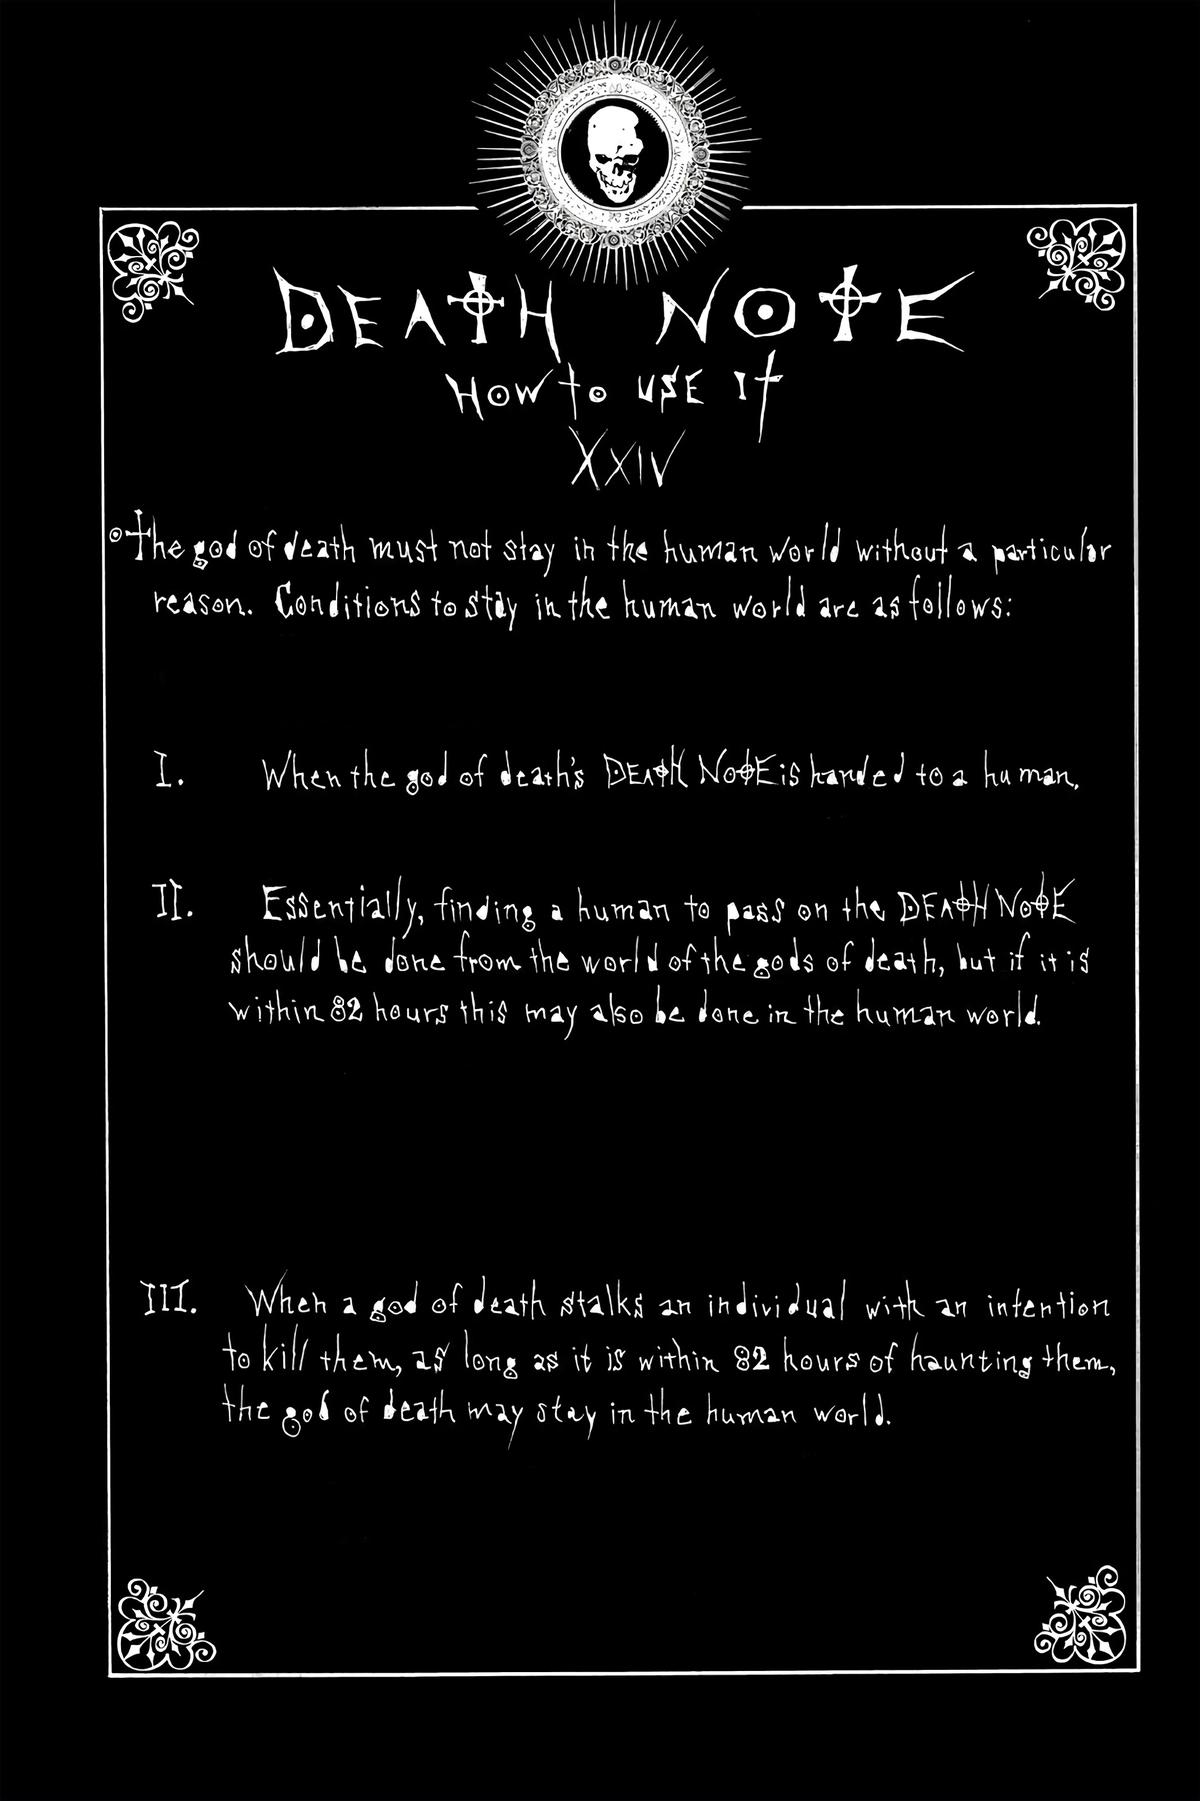 DEATH NOTE
HOW to USE It
XXIV
The god of death must not stay in the human world without a particular
reason. Conditions to stay in the human world are as follows:
I. When the god of death's DEATH NOTE is handed to a human.
II. Essentially, finding a human to pass on the DEATH NOTE
should be done from the world of the gods of death, but if it is
within 82 hours this may also be done in the human world.
III. When a god of death stalks an individual with an intention
to kill them, as long as it is within 82 hours of haunting them,
the god of death may stay in the human world.